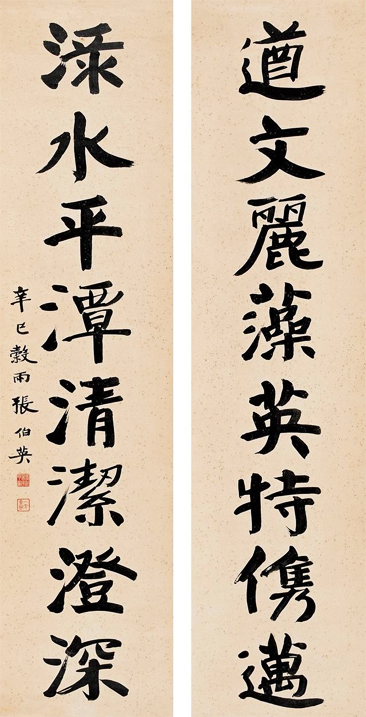 遒文麗藻英特儁邁
渌水平潭清潔澄深
辛巳穀雨張伯英